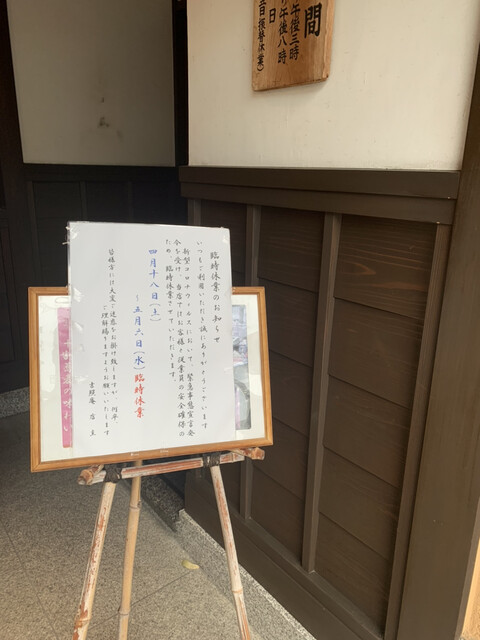 間
午後三時
午後八時
日
振替休業)
臨時休業のお知らせ
いつもご利用いただき誠にありがとうございます
新型コロナウィルスにおいて、緊急事態宣言発
令を受け、当店ではお客様と従業員の安全確保の
ため、臨時休業させていただきます。
四月十八日(土)
～五月六日(水)臨時休業
皆様方には大変ご迷惑をお掛け致しますが、何卒
ご理解賜りますようお願いいたします
店主
の味わい